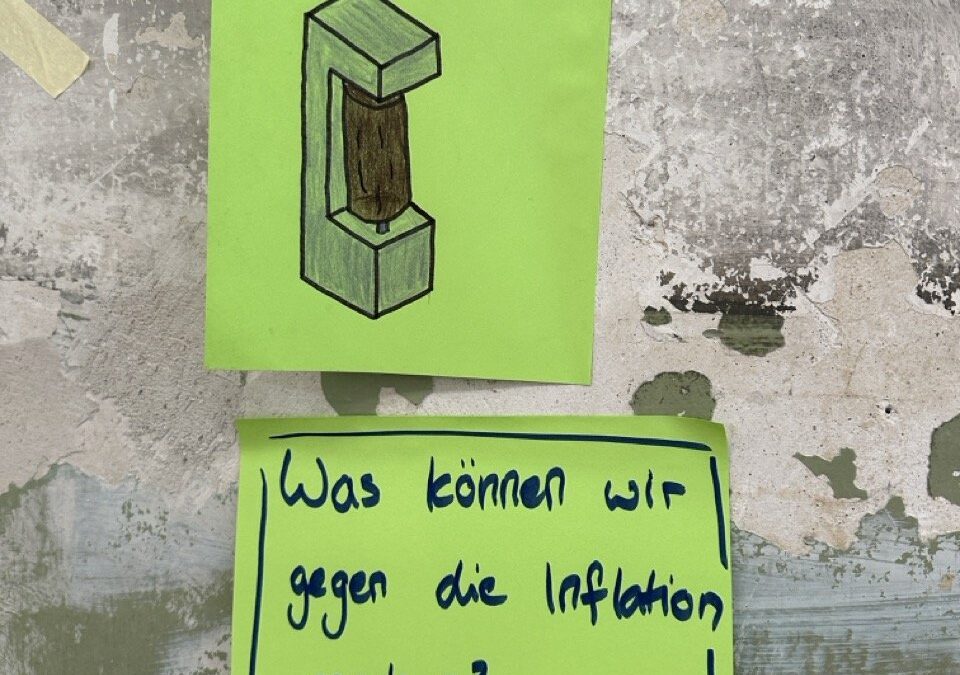 Was können wir
gegen die Inflation